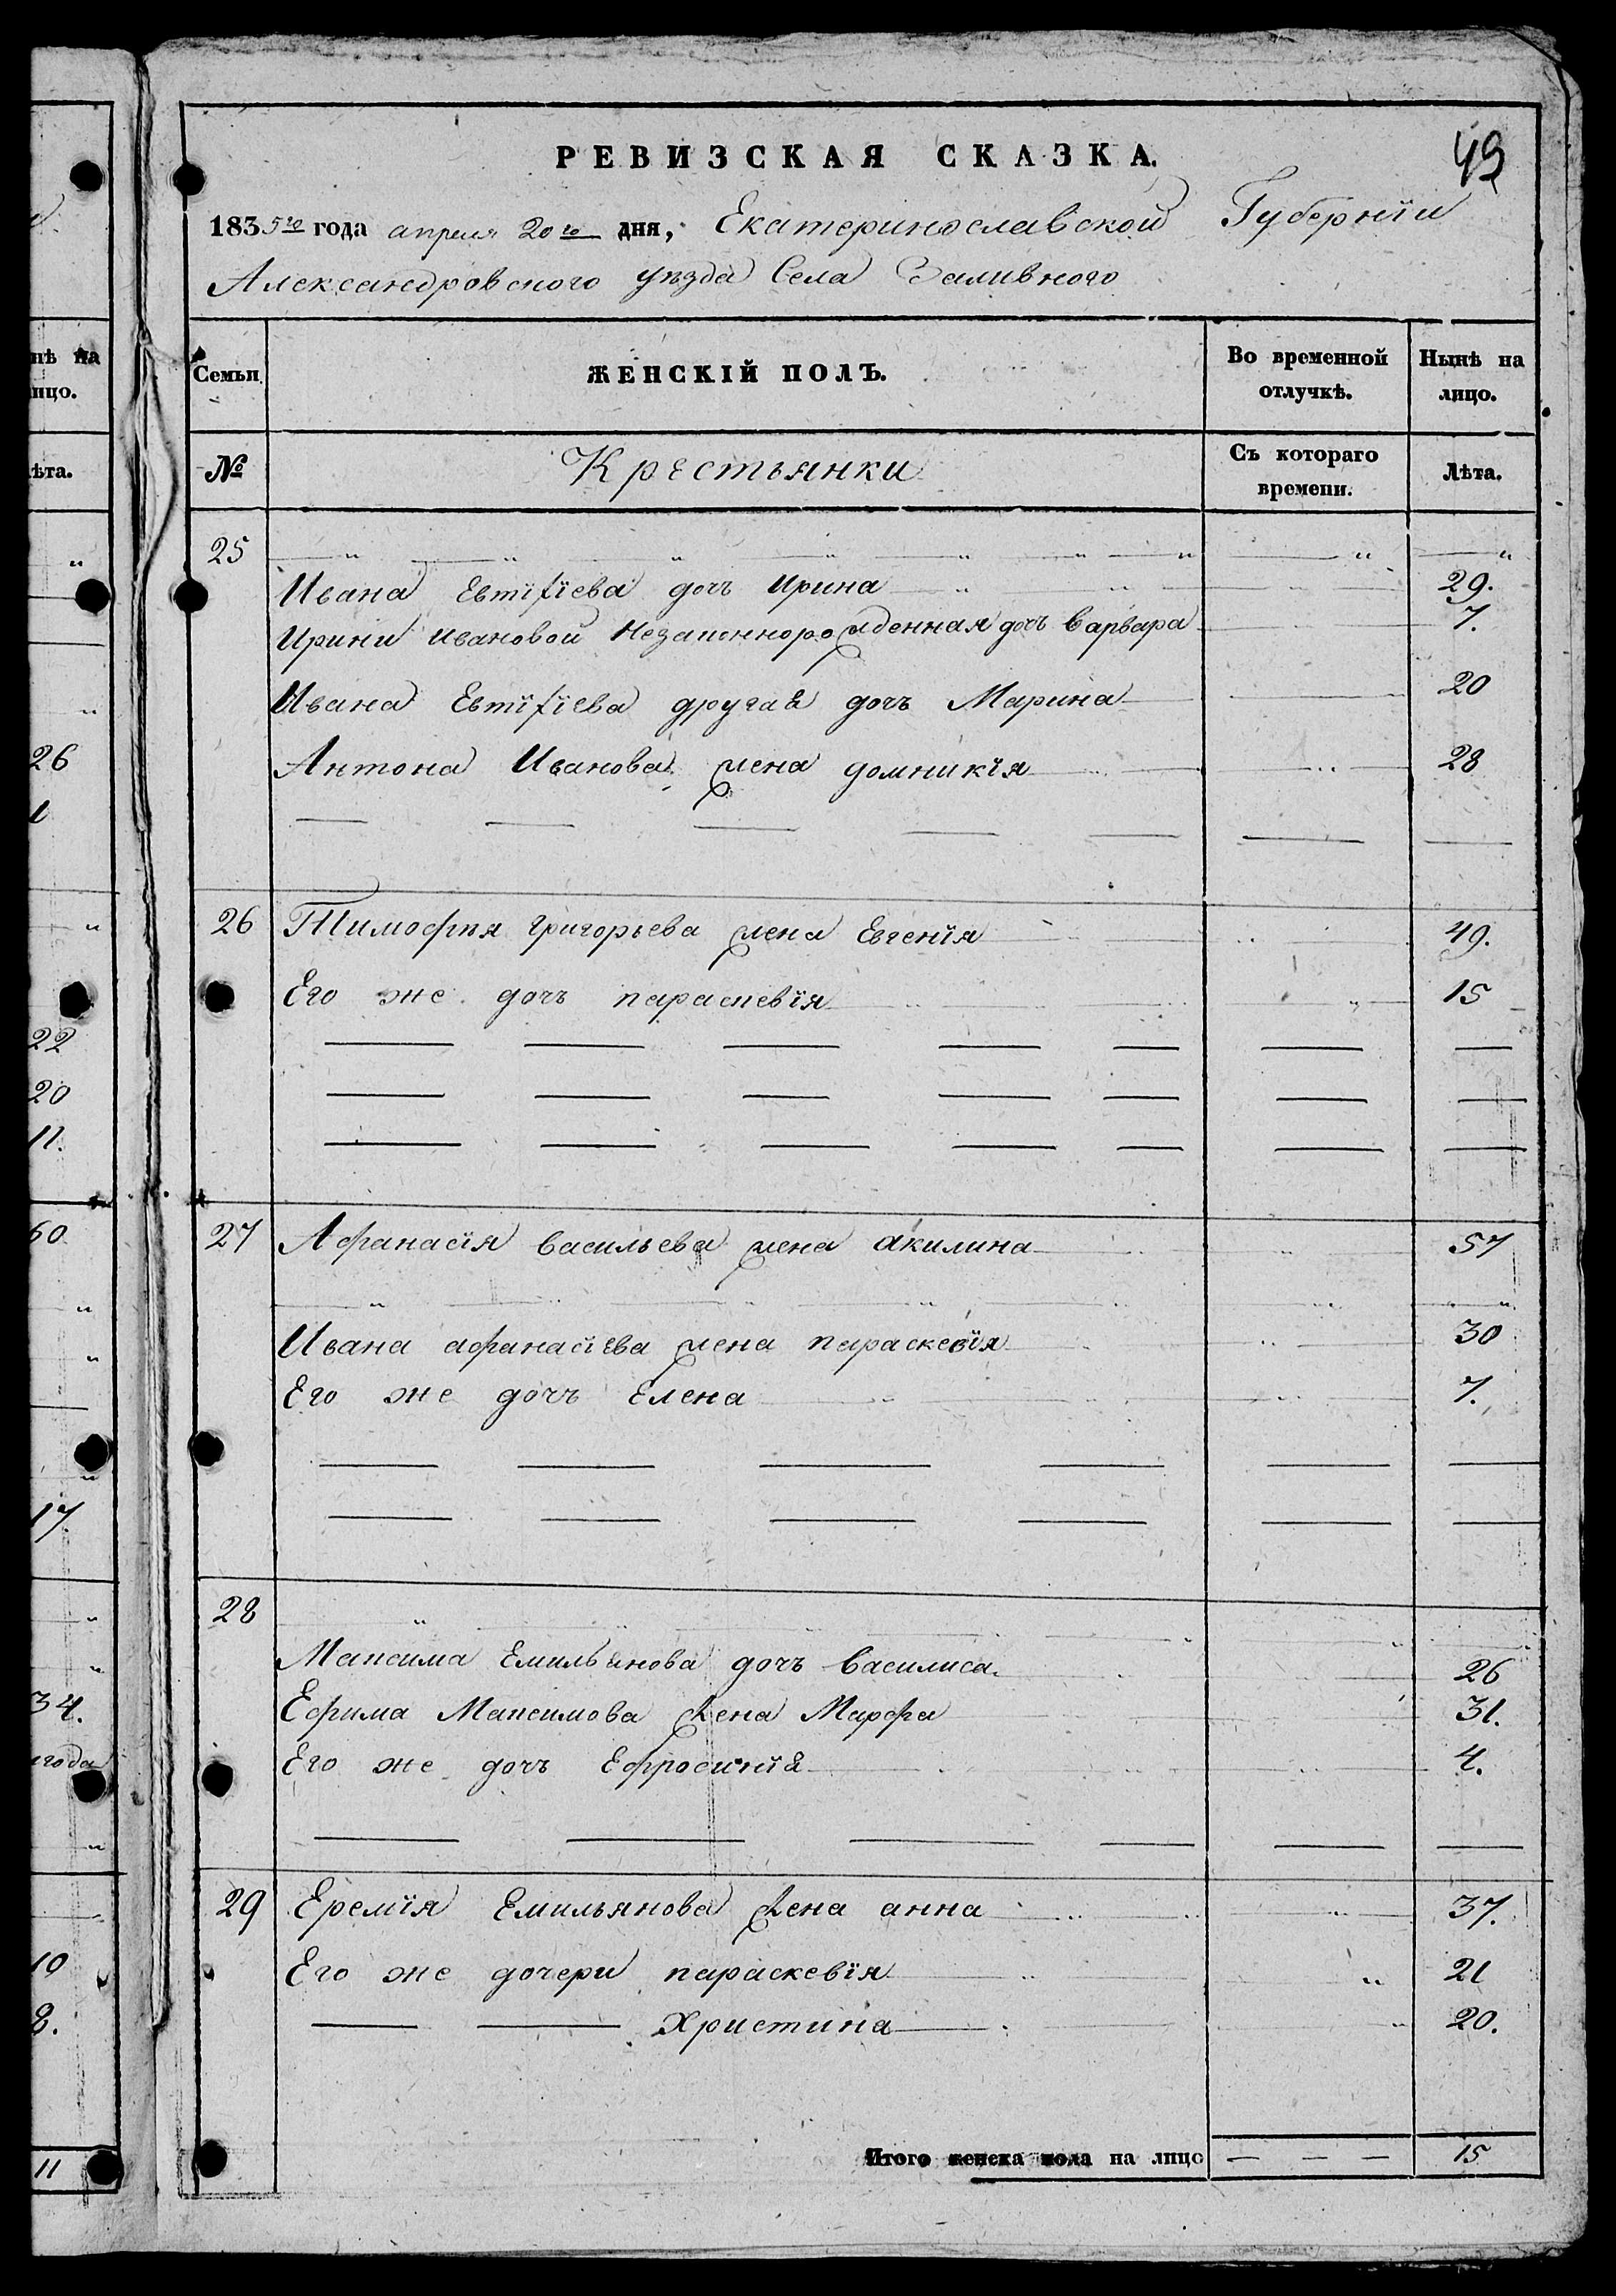 49
РЕВИЗСКАЯ СКАЗКА.
1835го года апреля 20го дня, Екатеринославской Губернїи
Александровского уѣзда Села Заливного
Семьи. ЖЕНСКІЙ ПОЛЪ. Во временной отлучкѣ. Нынѣ на лицо.
№ Крестьянки Съ котораго времени. Лѣта.
25
Ивана Евтїфїева дочъ Ирина 29.
Ирини Ивановой Незаконнорожденная дочъ Варвара 7.
Ивана Евтїфїева другая дочъ Марина 20
Антона Иванова жена домникїя 28
26 Тимофѣя Григорьева жена Евгенїя 49.
Его же дочъ параскевїя 15
27 Афанасїя Васильева жена акилина 57
Ивана афанасїева жена параскевїя 30
Его же дочъ Елена 7.
28
Максима Емильянова дочъ Василиса 26
Ефима Максимова жена Марфа 31.
Его же дочъ Ефросинїя 4.
29 Еремїя Емильянова жена анна 37.
Его же дочери параскевїя 21
Христина 20.
Итого женска пола на лицо 15
нѣ на
ицо.
ѣта.
26
1
22
20
11.
60
17
34.
года
19
8.
11